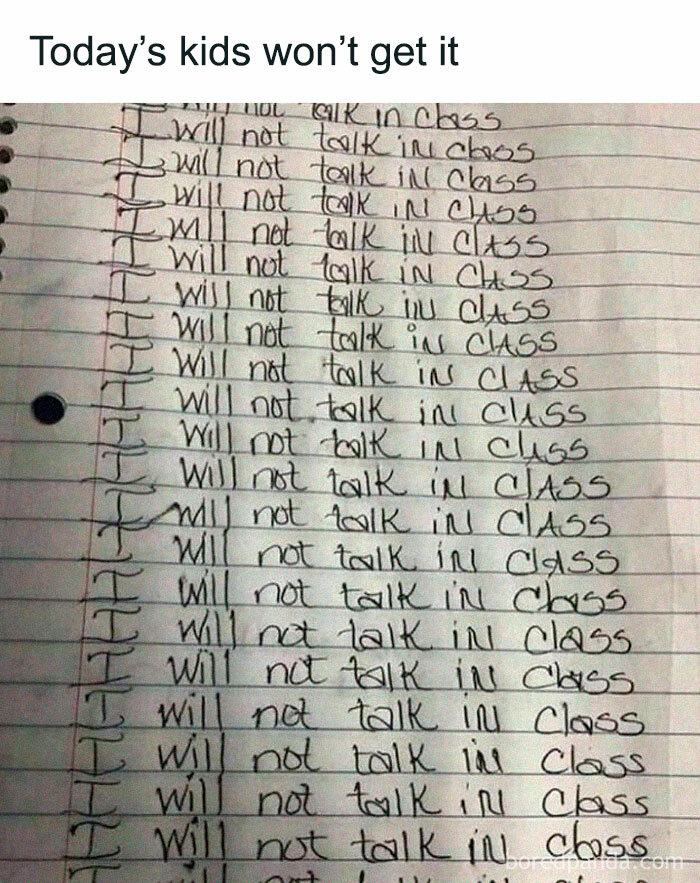 Today’s kids won’t get it
will not talk in class
I will not talk in class
I will not talk in class
I will not talk in clASS
I will not talk in clASS
I will not talk in clASS
I will not talk in clASS
I will not talk in clASS
I will not talk in clASS
I will not talk in clASS
I will not talk in clASS
I will not talk in clASS
I will not talk in clASS
I will not talk in clASS
I will not talk in class
I will not talk in class
I will not talk in class
I will not talk in class
I will not talk in class
I will not talk in class
I will not talk in class
boredpanda.com